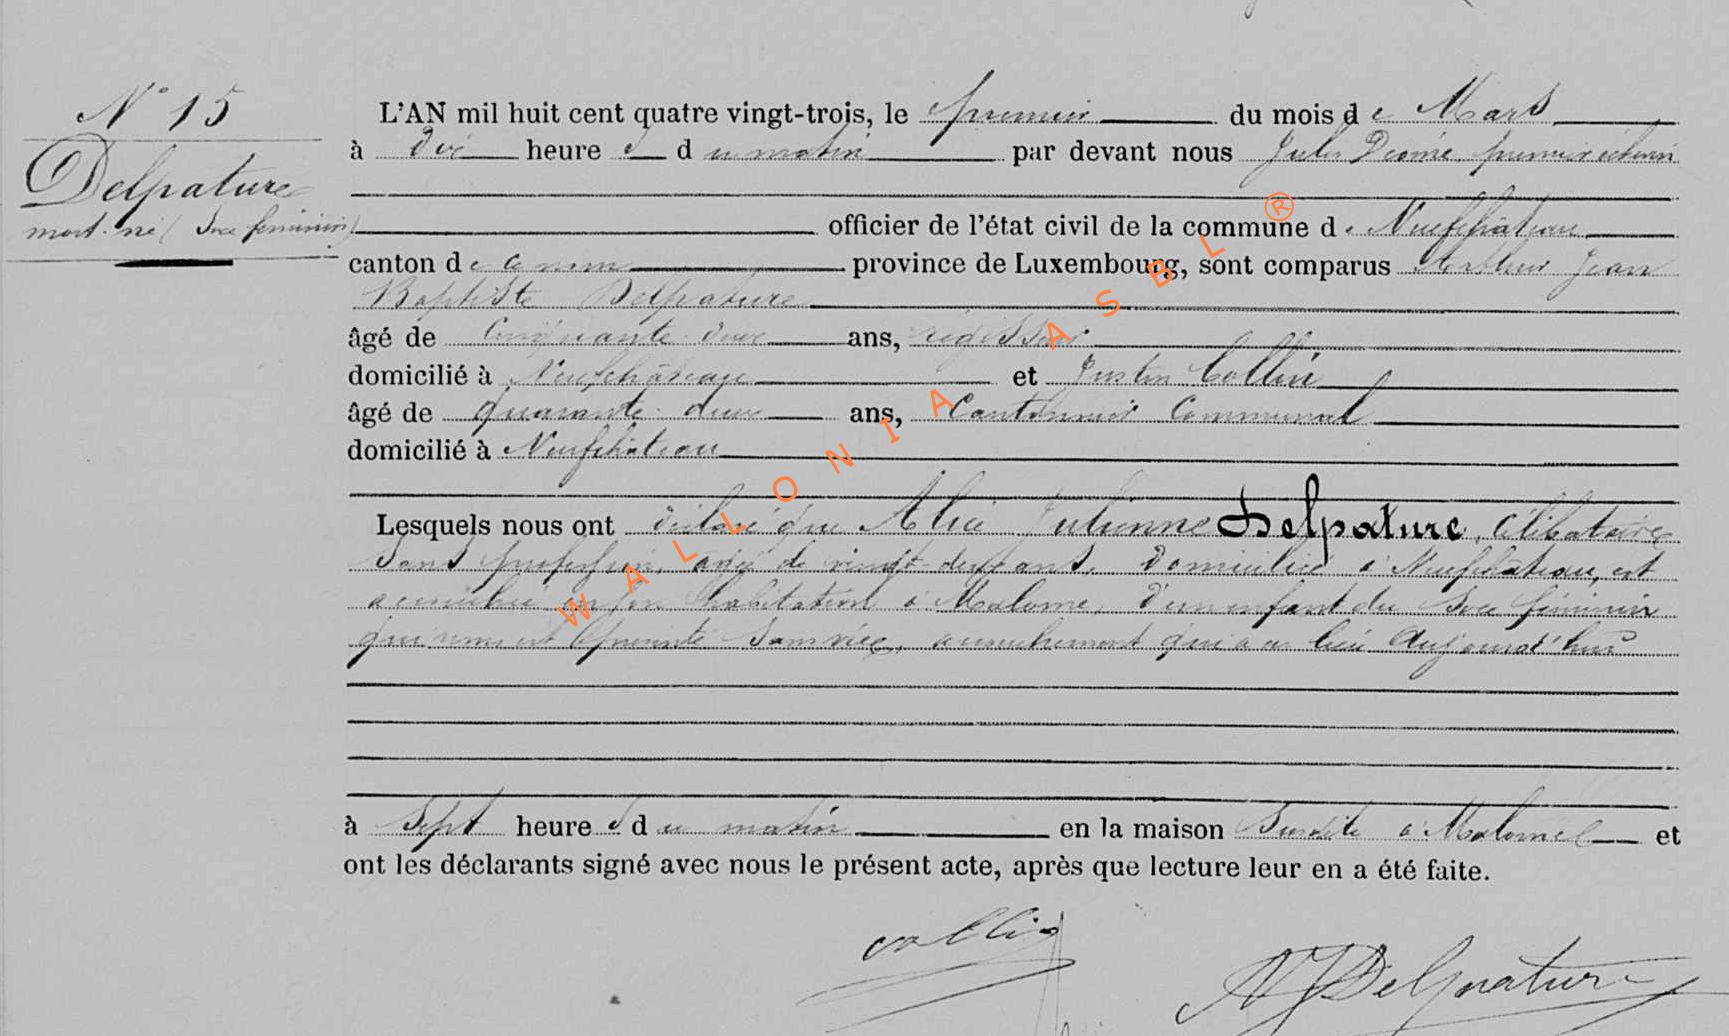 N° 15
Delpature
mort-né (Sexe féminin)
L'AN mil huit cent quatre vingt-trois, le premier du mois de Mars
à dix heures du matin par devant nous Jules premier échevin
officier de l'état civil de la commune de Neufchâteau
canton de ce nom province de Luxembourg, sont comparus Jean
Baptiste Delpature
âgé de Cinquante deux ans, régisseur
domicilié à Neufchâteau et Justin Collin
âgé de quarante deux ans, Cantonnier Communal
domicilié à Neufchâteau
Lesquels nous ont déclaré que Alice Julienne Delpature, célibataire
sans profession, agée de vingt-deux ans, domiciliée à Neufchâteau, est
accouchée en son habitation à Malome, d'un enfant du Sexe féminin
qui nous est présenté sans vie, accouchement qui a eu lieu Aujourd'hui
à Sept heures du matin en la maison Susdite à Malome et
ont les déclarants signé avec nous le présent acte, après que lecture leur en a été faite.
collin
Delpature
WALLONIA ASBL ®